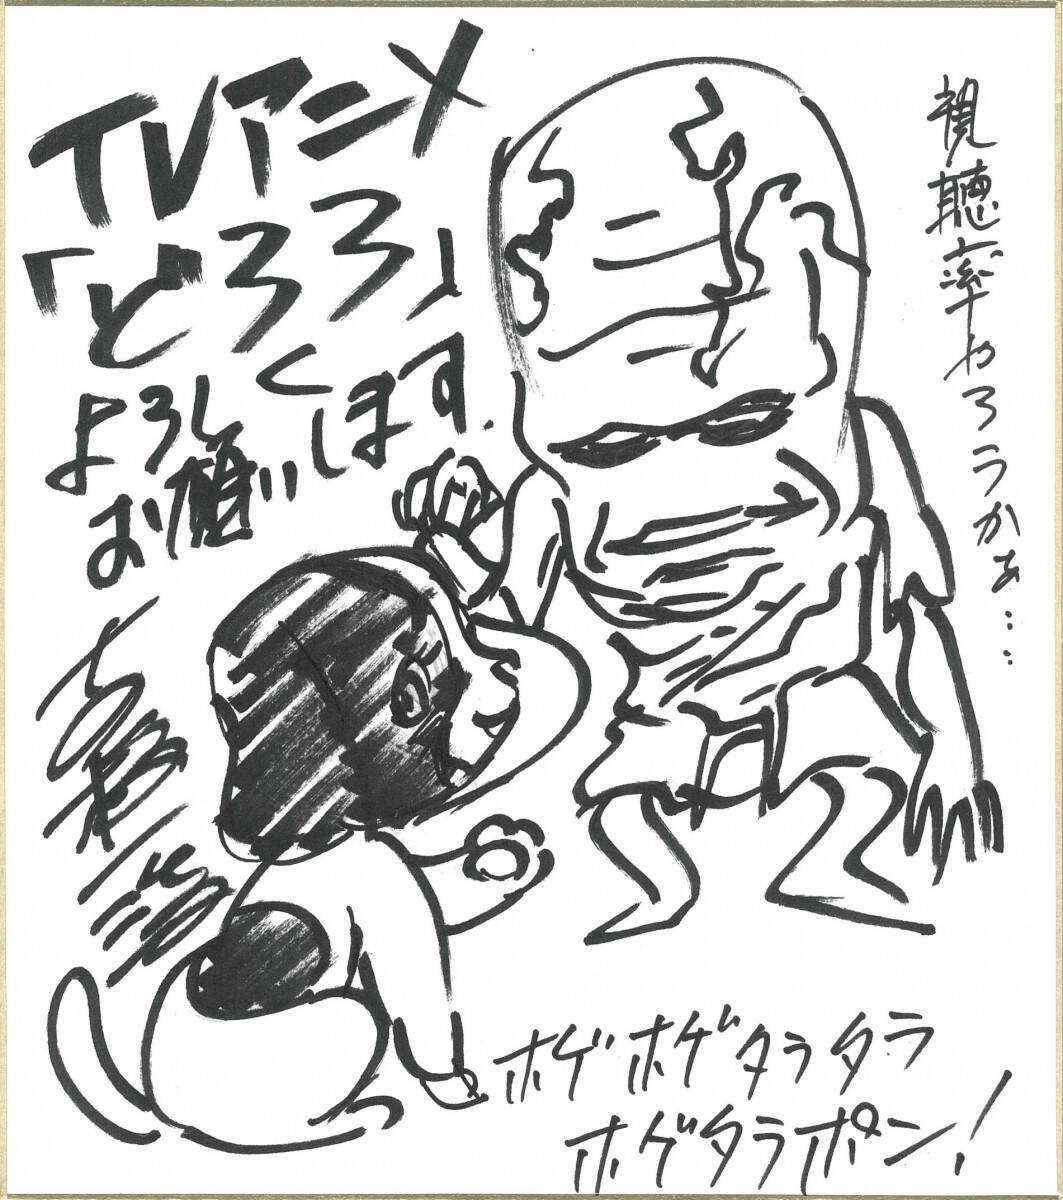 TVアニメ
「どろろ」
よろしく
お願いします.
視聴率やろうかあ……
ホゲホゲタラタラ
ホゲタラポン!